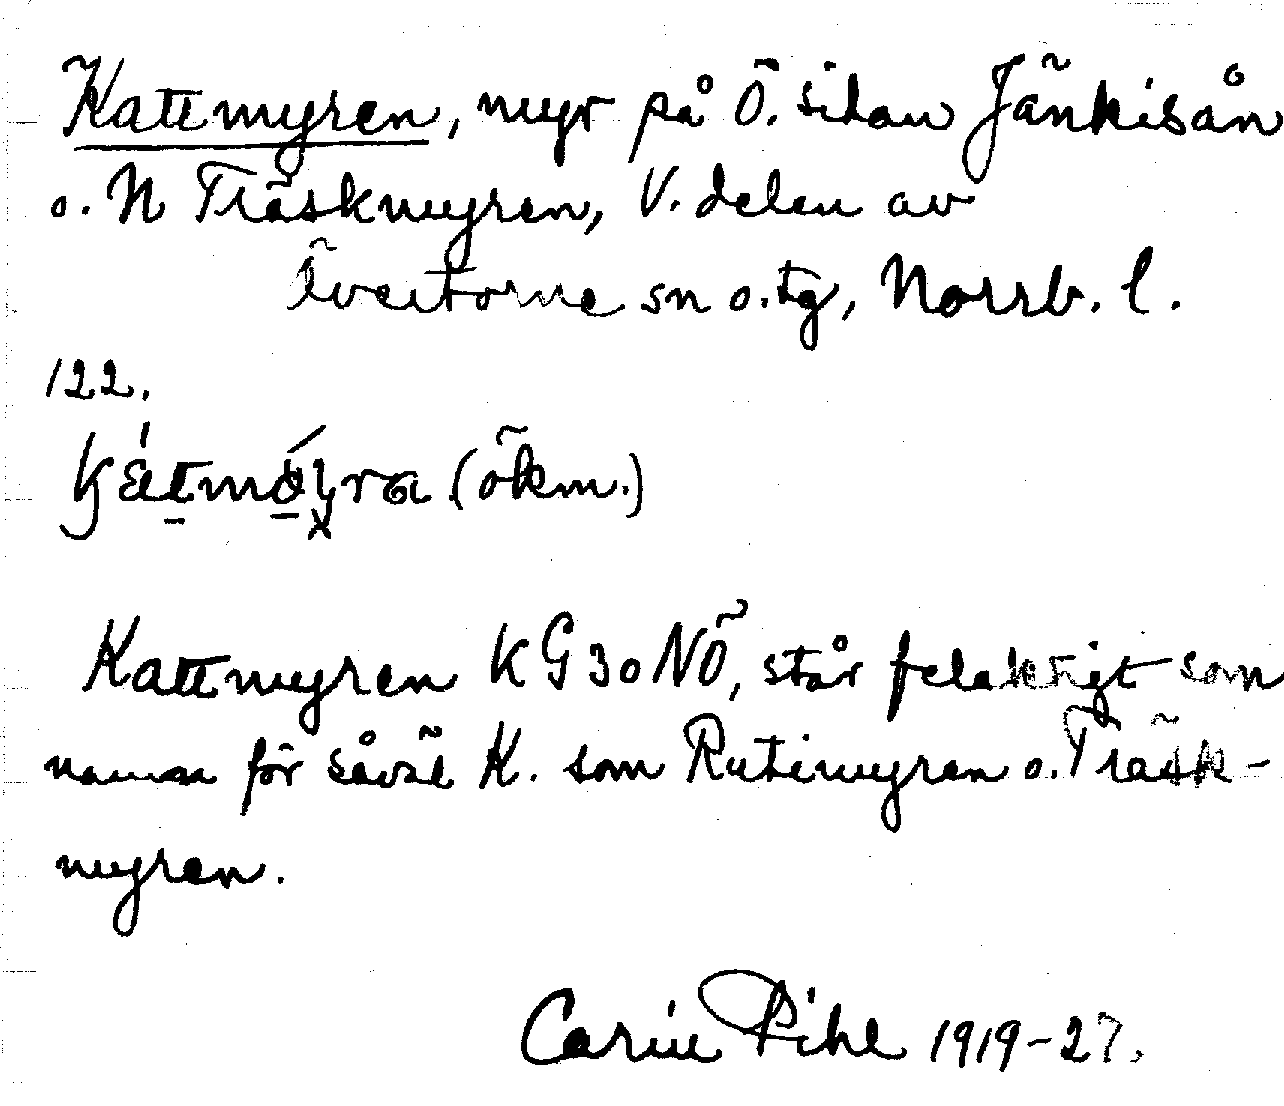 Kattmyren, myr på Ö. sidan Jänkisån
o. N Träskmyren, V. delen av
Övertorne sn o. tg, Norrb. l.
122.
(ökm.)
Kattmyren KG 30 NÖ, står felaktigt som
namn för såväl K. som Rutimyren o. Träsk-
myren.
Carin Pihl 1919-27.